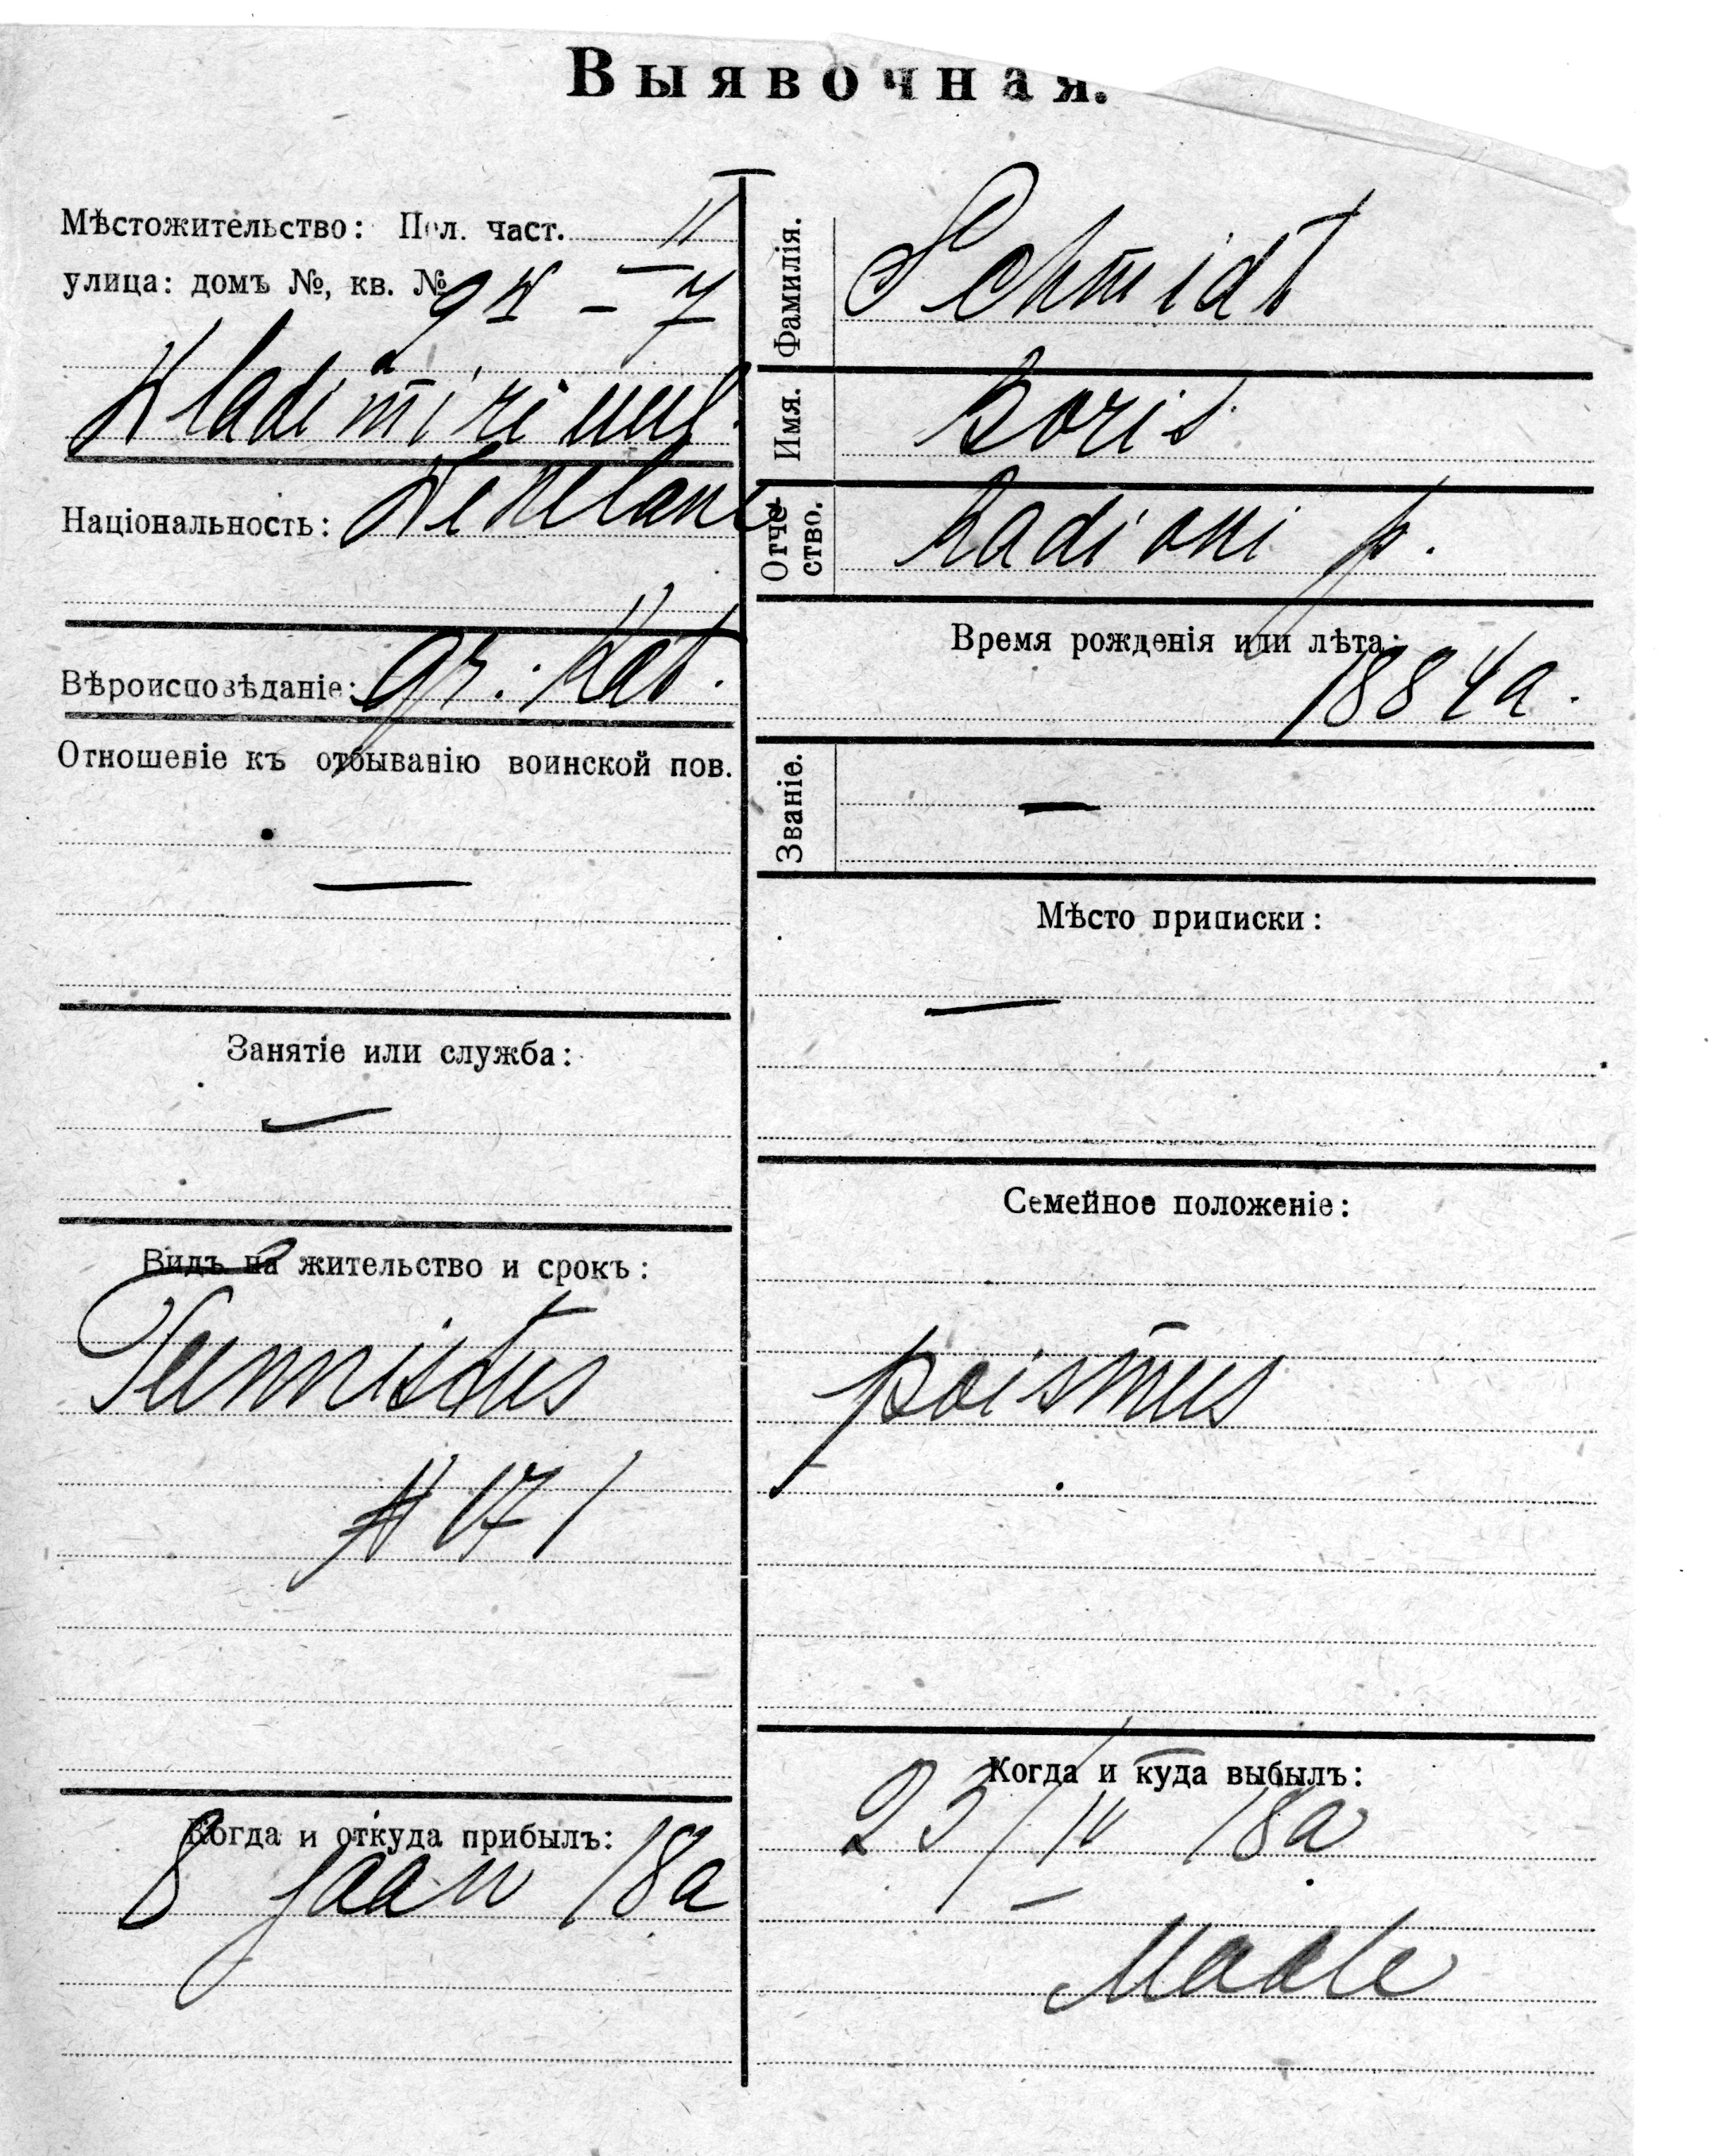 Выявочная.
Мѣстожительство: Пол. част. II
улица: домъ №, кв. №
Wladimiri uul.
Національность: Wenelane
Вѣроисповѣданіе: gr. Kat.
Отношеніе къ отбыванію воинской пов.
—
Занятіе или служба:
—
Видъ на жительство и срокъ:
Tunnistus
№ 171
Когда и откуда прибылъ:
8 Jaan 18a
Фамилія. Schmidt
Имя. Boris
Отчество. Radioni p.
Время рожденія или лѣта:
1884a.
Званіе. —
Мѣсто приписки:
—
Семейное положеніе:
poismees
Когда и куда выбылъ:
23/IV 18a
Maale